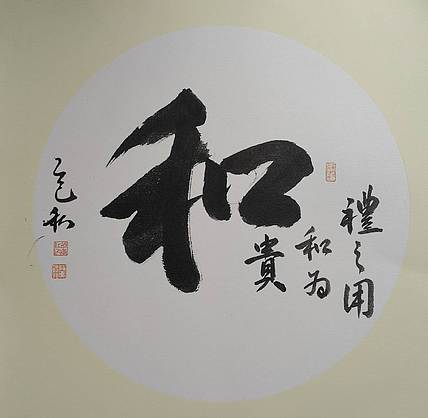 和
禮之用
和為
貴